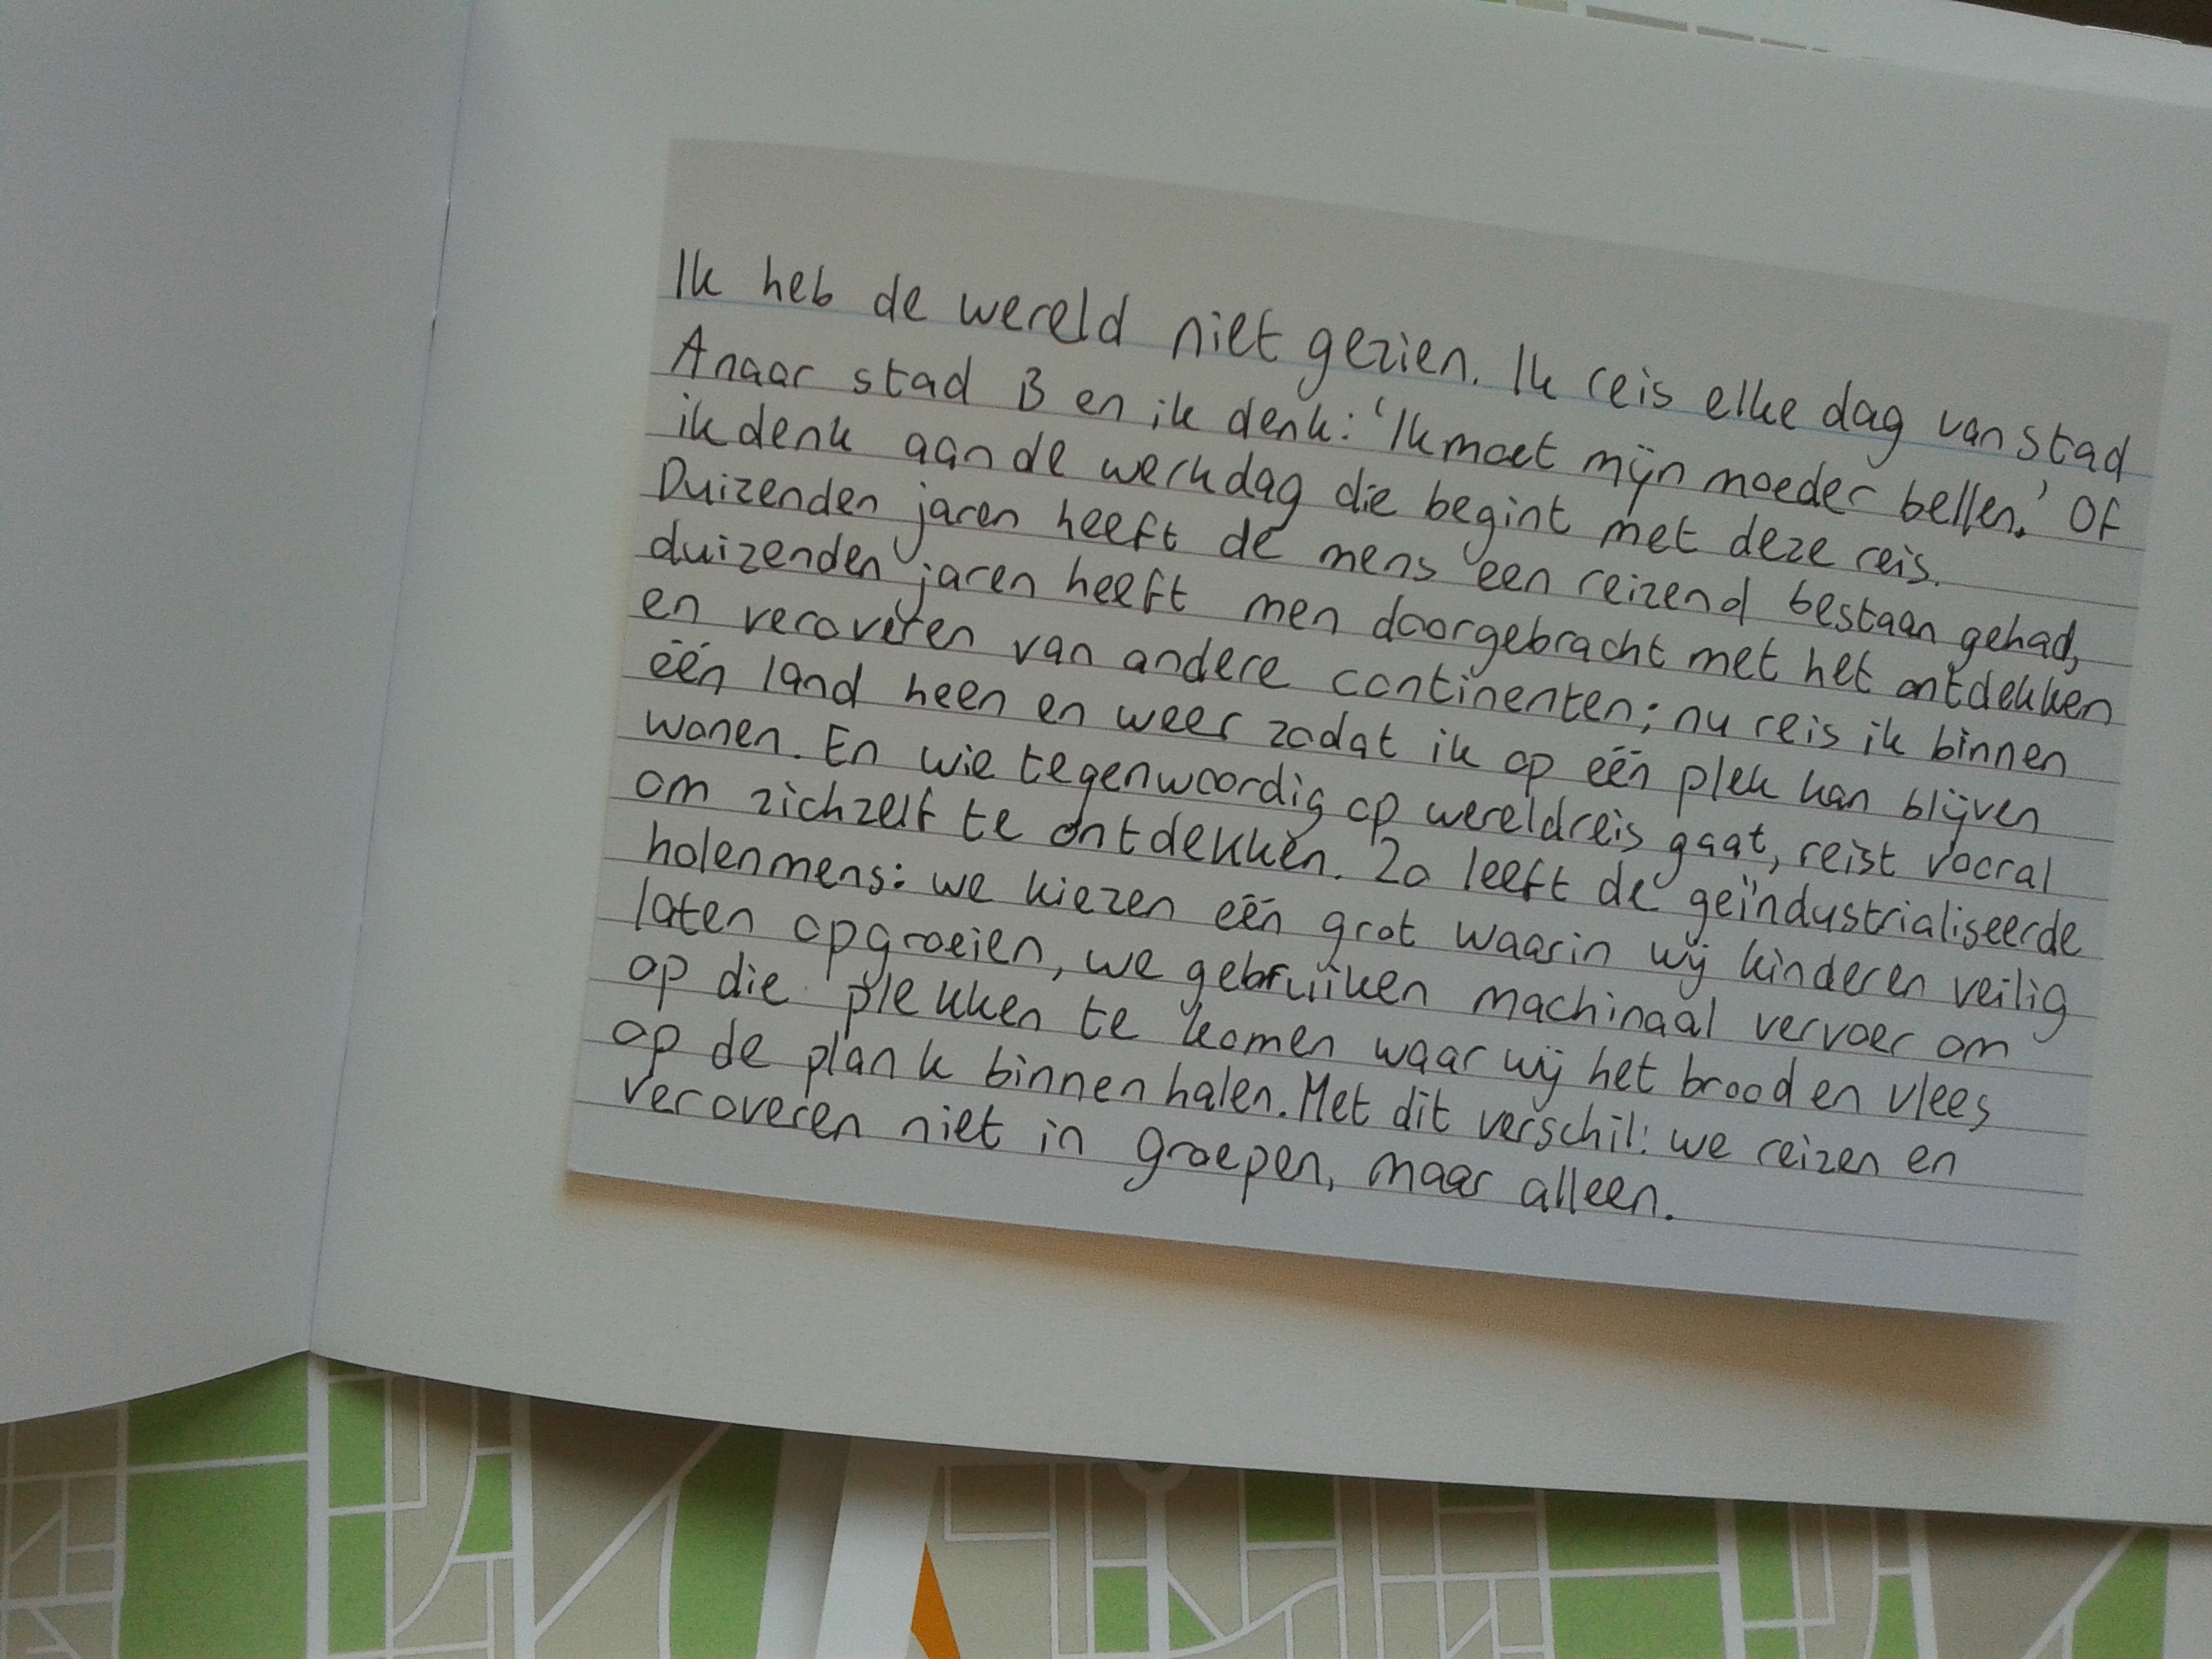 Ik heb de wereld niet gezien. Ik reis elke dag van stad
A naar stad B en ik denk: 'Ik moet mijn moeder bellen.' Of
ik denk aan de werkdag die begint met deze reis.
Duizenden jaren heeft de mens een reizend bestaan gehad,
duizenden jaren heeft men doorgebracht met het ontdekken
en veroveren van andere continenten; nu reis ik binnen
één land heen en weer zodat ik op één plek kan blijven
wonen. En wie tegenwoordig op wereldreis gaat, reist vooral
om zichzelf te ontdekken. Zo leeft de geïndustrialiseerde
holenmens: we kiezen één grot waarin wij kinderen veilig
laten opgroeien, we gebruiken machinaal vervoer om
op die plekken te komen waar wij het brood en vlees
op de plank binnenhalen. Met dit verschil: we reizen en
veroveren niet in groepen, maar alleen.